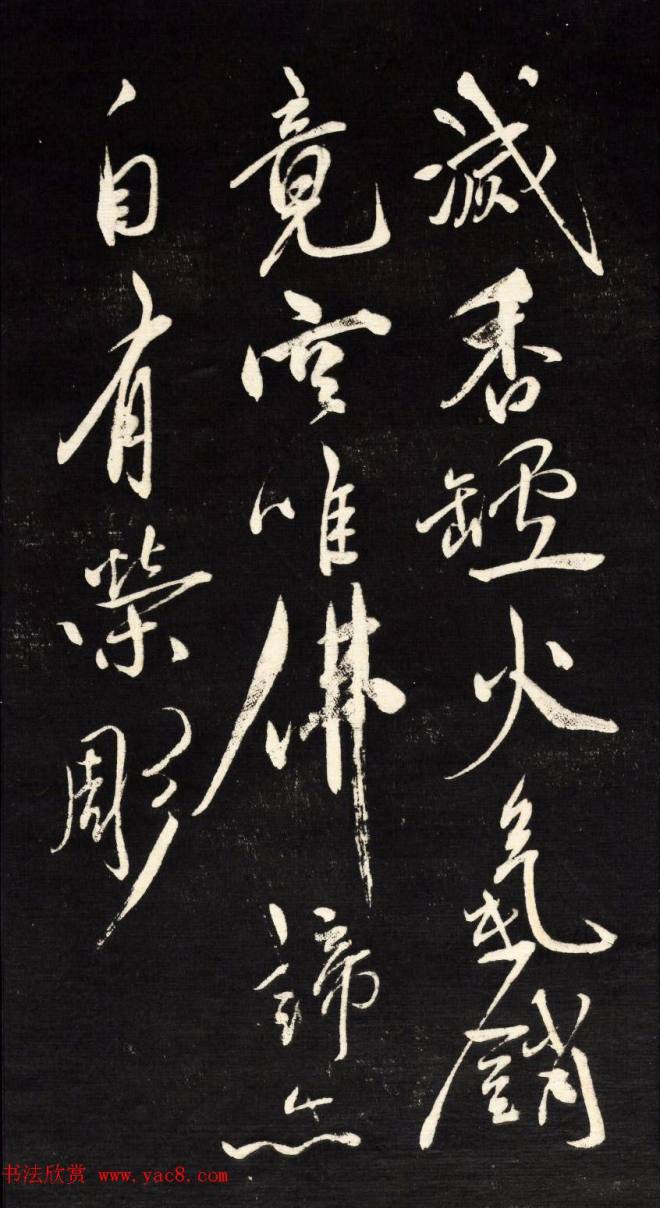 滅香罏火氣銷
竟空唯佛諦亦
自有榮彫
书法欣赏 www.yac8.com